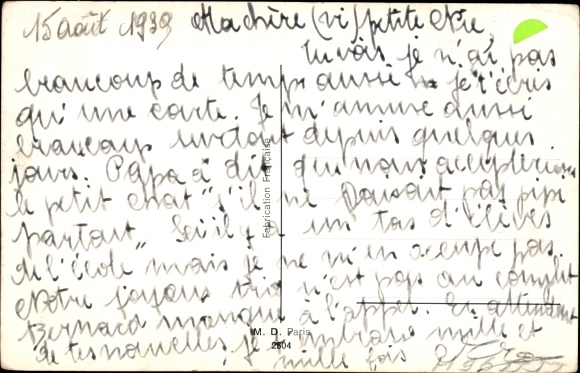 15 Août 1939 Ma chère (vi) petite
Tu vois je n'ai pas
beaucoup de temps aussi je t'écris
qu'une carte. Je m'amuse aussi
beaucoup surtout depuis quelques
jours. Papa a dit qui nous accepterions
le petit chat "s'il ne faisait pas pipi
partout" Ici il y a un tas d'élèves
de l'école mais je ne m'en occupe pas
Notre joyeux trio n'est pas au complet
Bernard manque à l'appel. En attendant
de tes nouvelles, je t'embrasse mille et
mille fois
Fabrication Française
M. D. Paris
2504